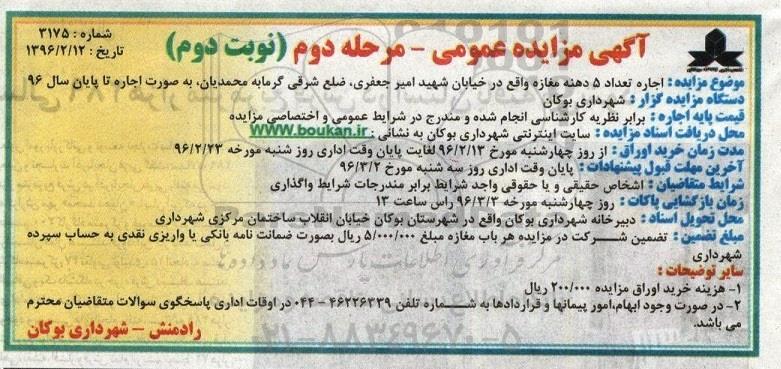 آگهی مزایده عمومی - مرحله دوم (نوبت دوم)
شماره : ۳۱۷۵
تاریخ : ۱۳۹۶/۲/۱۲
موضوع مزایده : اجاره تعداد ۵ دهنه مغازه واقع در خیابان شهید امیر جعفری، ضلع شرقی گرمابه محمدیان، به صورت اجاره تا پایان سال ۹۶
دستگاه مزایده گزار : شهرداری بوکان
قیمت پایه اجاره : برابر نظریه کارشناسی انجام شده و مندرج در شرایط عمومی و اختصاصی مزایده
محل دریافت اسناد مزایده : سایت اینترنتی شهرداری بوکان به نشانی : WWW.boukan.ir
مدت زمان خرید اوراق : از روز چهارشنبه مورخ ۹۶/۲/۱۳ لغایت پایان وقت اداری روز شنبه مورخه ۹۶/۲/۲۳
آخرین مهلت قبول پیشنهادات : پایان وقت اداری روز سه شنبه مورخ ۹۶/۳/۲
شرایط متقاضیان : اشخاص حقیقی و یا حقوقی واجد شرایط برابر مندرجات شرایط واگذاری
زمان بازگشایی پاکات : روز چهارشنبه مورخه ۹۶/۳/۳ راس ساعت ۱۳
محل تحویل اسناد : دبیرخانه شهرداری بوکان واقع در شهرستان بوکان خیابان انقلاب ساختمان مرکزی شهرداری
مبلغ تضمین : تضمین شرکت در مزایده هر باب مغازه مبلغ ۵/۰۰۰/۰۰۰ ریال بصورت ضمانت نامه بانکی یا واریزی نقدی به حساب سپرده
شهرداری
سایر توضیحات :
۱- هزینه خرید اوراق مزایده ۲۰۰/۰۰۰ ریال
۲- در صورت وجود ابهام،امور پیمانها و قراردادها به شماره تلفن ۴۶۲۲۶۳۳۹ - ۰۴۴ در اوقات اداری پاسخگوی سوالات متقاضیان محترم
می باشد.
رادمنش - شهرداری بوکان